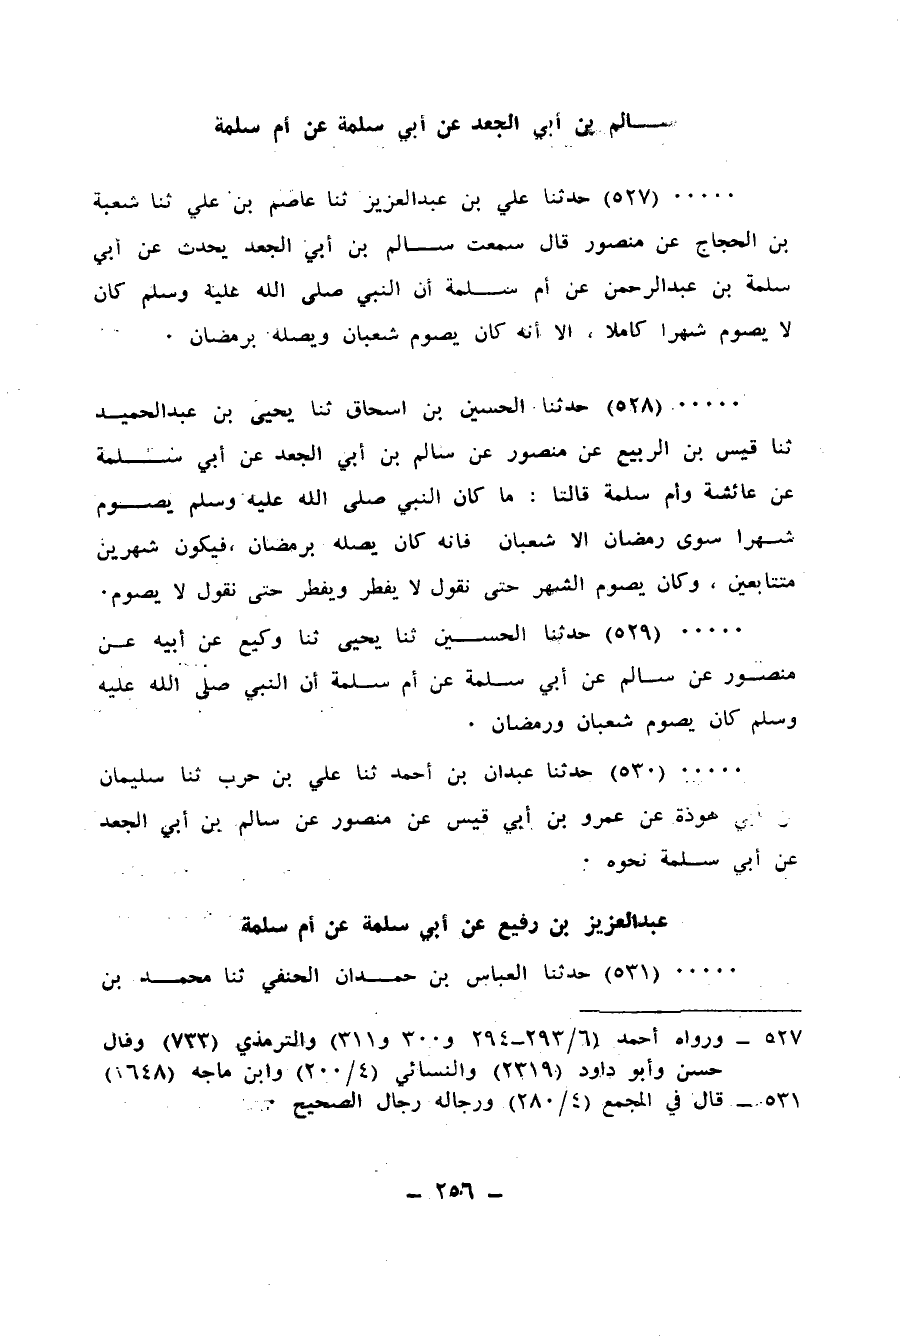 سالم بن أبي الجعد عن أبي سلمة عن أم سلمة
..... (٥٢٧) حدثنا علي بن عبدالعزيز ثنا عاصم بن علي ثنا شعبة
بن الحجاج عن منصور قال سمعت سالم بن أبي الجعد يحدث عن أبي
سلمة بن عبدالرحمن عن أم سلمة أن النبي صلى الله علية وسلم كان
لا يصوم شهرا كاملا ، الا أنه كان يصوم شعبان ويصله برمضان .
..... (٥٢٨) حدثنا الحسين بن اسحاق ثنا يحيى بن عبدالحميد
ثنا قيس بن الربيع عن منصور عن سالم بن أبي الجعد عن أبي سلمة
عن عائشة وأم سلمة قالتا : ما كان النبي صلى الله عليه وسلم يصوم
شهرا سوى رمضان الا شعبان فانه كان يصله برمضان ،فيكون شهرين
متتابعين ، وكان يصوم الشهر حتى نقول لا يفطر ويفطر حتى نقول لا يصوم.
..... (٥٢٩) حدثنا الحسين ثنا يحيى ثنا وكيع عن أبيه عن
منصور عن سالم عن أبي سلمة عن أم سلمة أن النبي صلى الله عليه
وسلم كان يصوم شعبان ورمضان .
..... (٥٣٠) حدثنا عبدان بن أحمد ثنا علي بن حرب ثنا سليمان
هوذة عن عمرو بن أبي قيس عن منصور عن سالم بن أبي الجعد
عن أبي سلمة نحوه .
عبدالعزيز بن رفيع عن أبي سلمة عن أم سلمة
..... (٥٣١) حدثنا العباس بن حمدان الحنفي ثنا محمد بن
٥٢٧ ـ ورواه أحمد (٦/٢٩٣ـ٢٩٤ و٣٠٠ و٣١١) والترمذي (٧٣٣) وقال
حسن وأبو داود (٢٣١٩) والنسائي (٤/٢٠٠) وابن ماجه (١٦٤٨)
٥٣١ ـ قال في المجمع (٤/٢٨٠) ورجاله رجال الصحيح .
ـ ٢٥٦ ـ